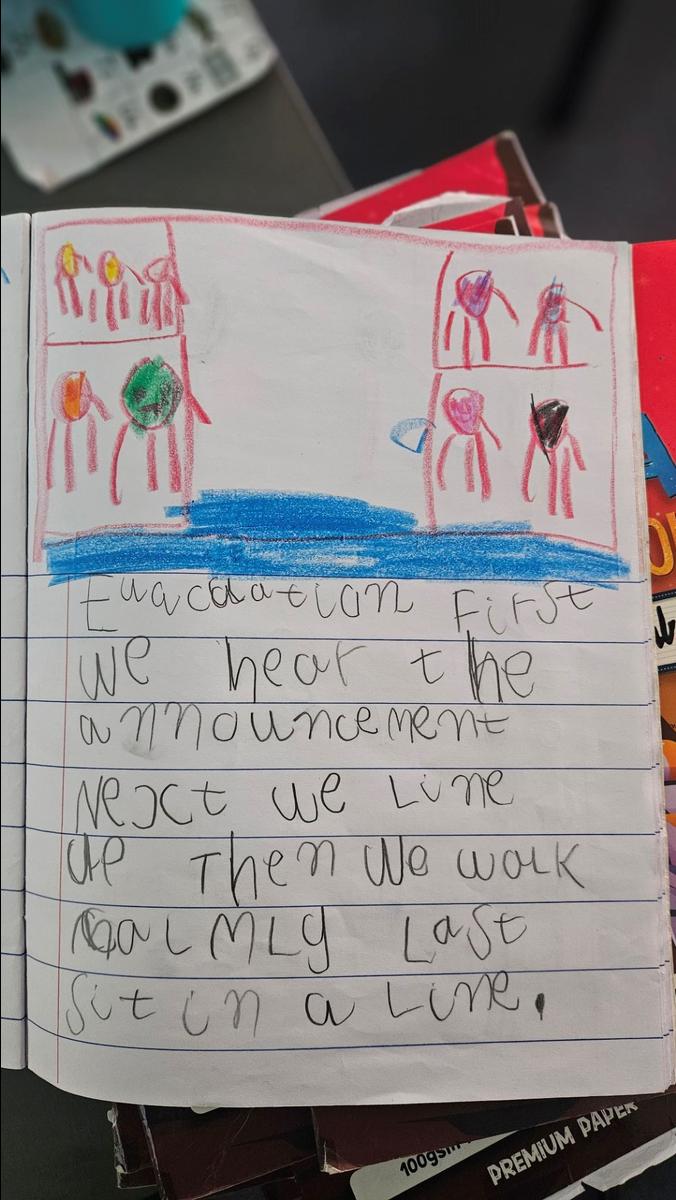 Evacuation First
we hear the
announcement
Next we Line
up Then we walk
calmly Last
sit in a Line.
100gsm
PREMIUM PAPER